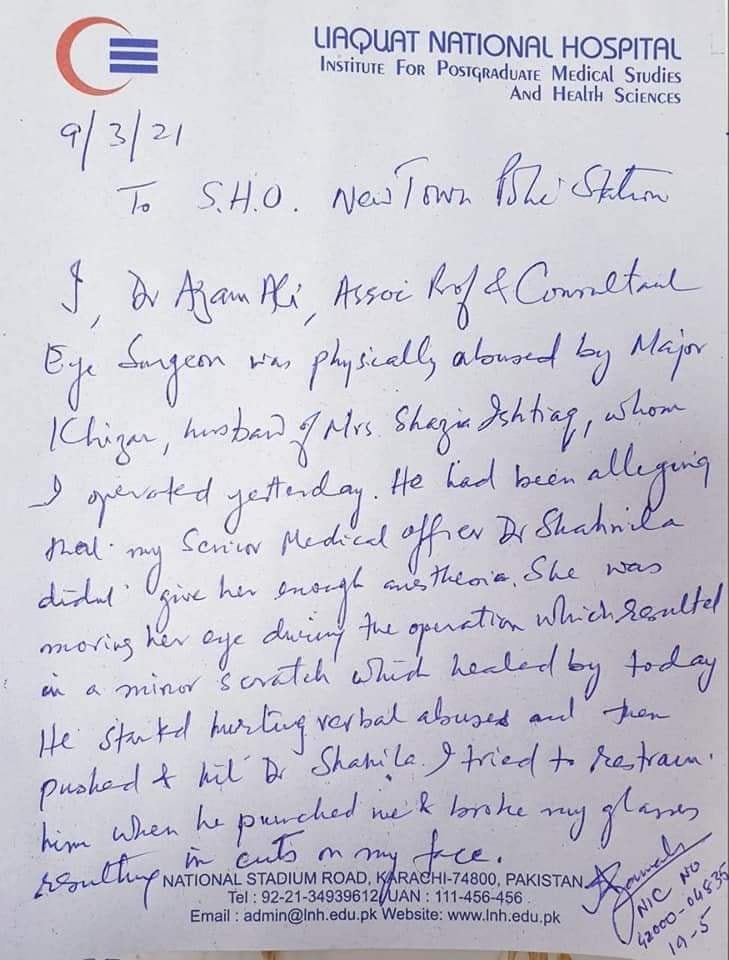 LIAQUAT NATIONAL HOSPITAL
INSTITUTE FOR POSTGRADUATE MEDICAL STUDIES
AND HEALTH SCIENCES
9/3/21
To S.H.O. New Town Police Station
I, Dr Azam Ali, Assoc Prof & Consultant
Eye Surgeon was physically abused by Major
Khizar, husband of Mrs Shazia Ishtiaq, whom
I operated yesterday. He had been alleging
that my Senior Medical officer Dr Shahnila
didnt give her enough anesthesia. She was
moving her eye during the operation which resulted
in a minor scratch which healed by today
He started hurling verbal abuses and then
pushed & hit Dr Shahila. I tried to restrain
him when he punched me & broke my glasses
resulting in cuts on my face.
NATIONAL STADIUM ROAD, KARACHI-74800, PAKISTAN
Tel : 92-21-34939612, UAN : 111-456-456
Email : admin@lnh.edu.pk Website: www.lnh.edu.pk
NIC NO
42000-04835
19-5